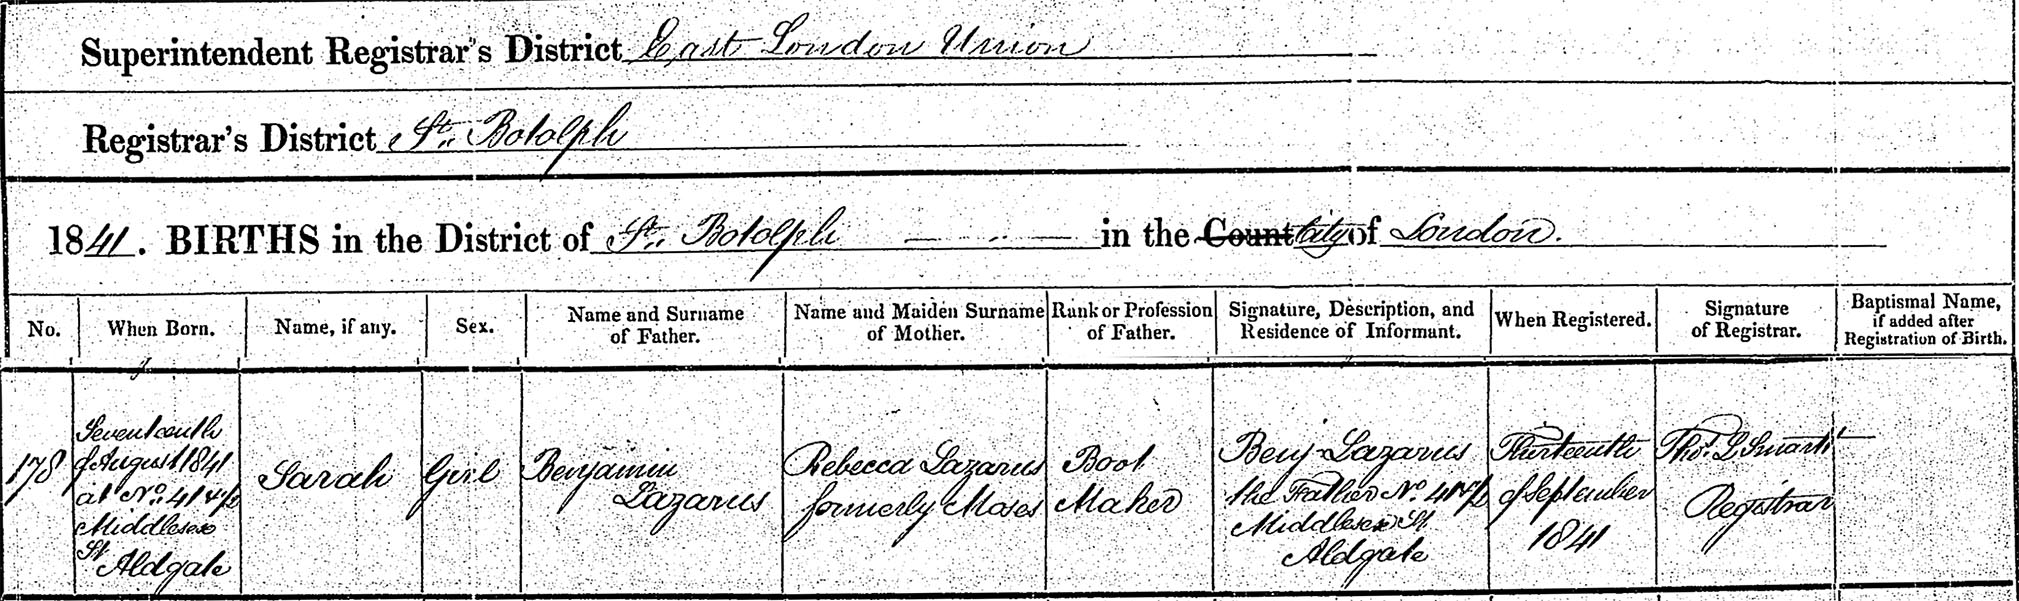 Superintendent Registrar's District East London Union
Registrar's District St. Botolph
1841. BIRTHS in the District of St. Botolph in the Count City of London.
No.
When Born.
Name, if any.
Sex.
Name and Surname
of Father.
Name and Maiden Surname
of Mother.
Rank or Profession
of Father.
Signature, Description, and
Residence of Informant.
When Registered.
Signature
of Registrar.
Baptismal Name,
if added after
Registration of Birth.
178
Seventeenth
of August 1841
at No. 41
Middlesex
St
Aldgate
Sarah
Girl
Benjamin
Lazarus
Rebecca Lazarus
formerly Moses
Boot
Maker
Benj Lazarus
the Father No. 41
Middlesex St
Aldgate
Thirteenth
of September
1841
Thos. L. Smart
Registrar